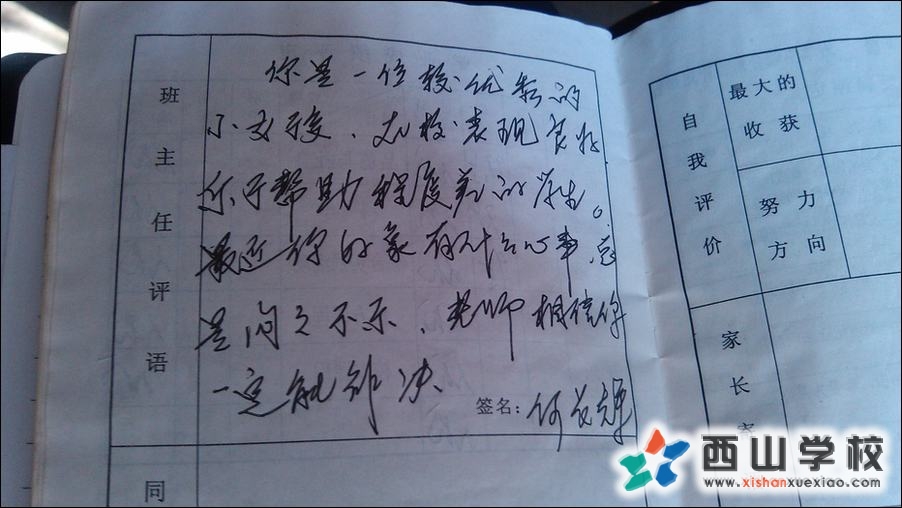 班主任评语
你是一位较优秀的
小女孩、在校表现良好
乐于帮助程度差的学生。
最近你好象有什么心事总
是闷闷不乐、老师相信你
一定能解决
签名:何
同
自我评价
最大的
收获
努力
方向
家长
西山学校
www.xishanxuexiao.com